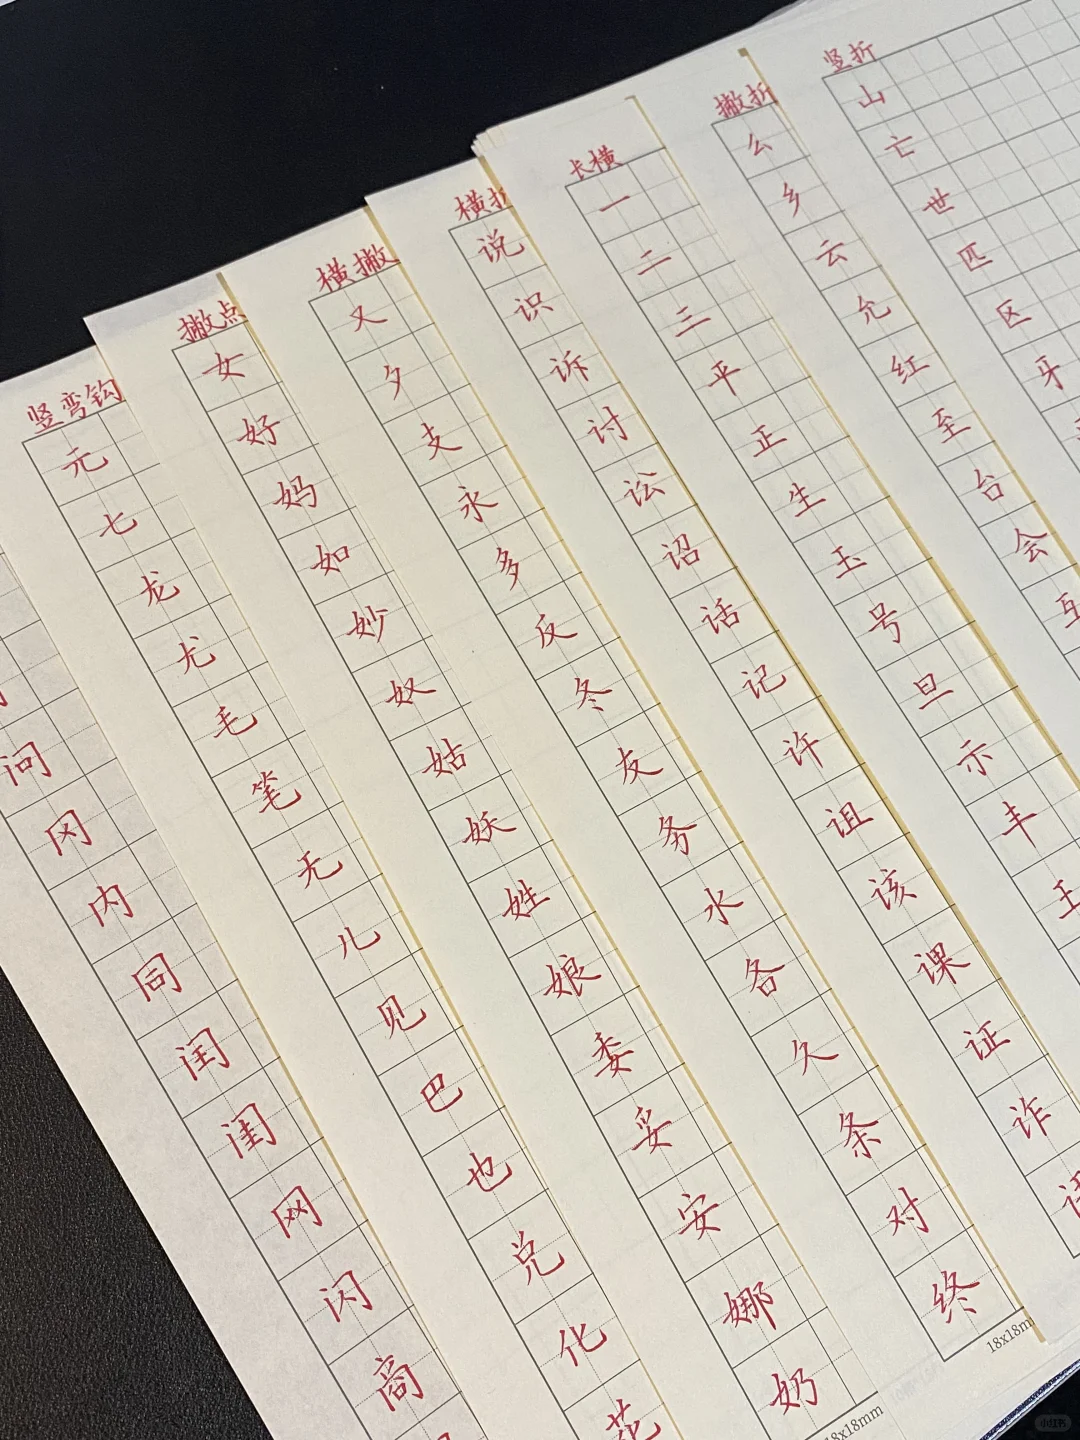 问冈内同闰闺网闪商
竖弯钩
元七龙尤毛笔无儿见巴也兑化花
撇点
女好妈如妙奴姑妖姓娘委妥安娜奶
18x18mm
横撇
又夕支永多反冬友务水各久条对终
18x18m
横折
说识诉讨讼诏话记许诅该课证诈
长横
一二三平正生玉号旦示丰王
撇折
么乡云允红至台会互
竖折
山亡世匹区牙
小红书